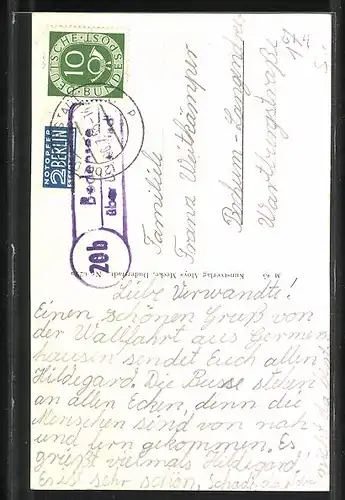 DEUTSCHE BUNDESPOST
10
NOTOPFER
2 BERLIN
STEUERMARKE
20b
Bodensee
über
Familie
Franz Weitkämper
Bochum-Langendreer
Wartburgstraße
174
Kunstverlag Aloys Mecke, Duderstadt
Liebe Verwandte!
Einen schönen Gruß von
der Wallfahrt aus Germers-
hausen sendet Euch allen
Hildegard. Die Busse stehen
an allen Ecken, denn die
Menschen sind von nah
und fern gekommen. Es
grüßt vielmals Hildegard!
Es ist sehr schön, Schade, daß Ihr
nicht da